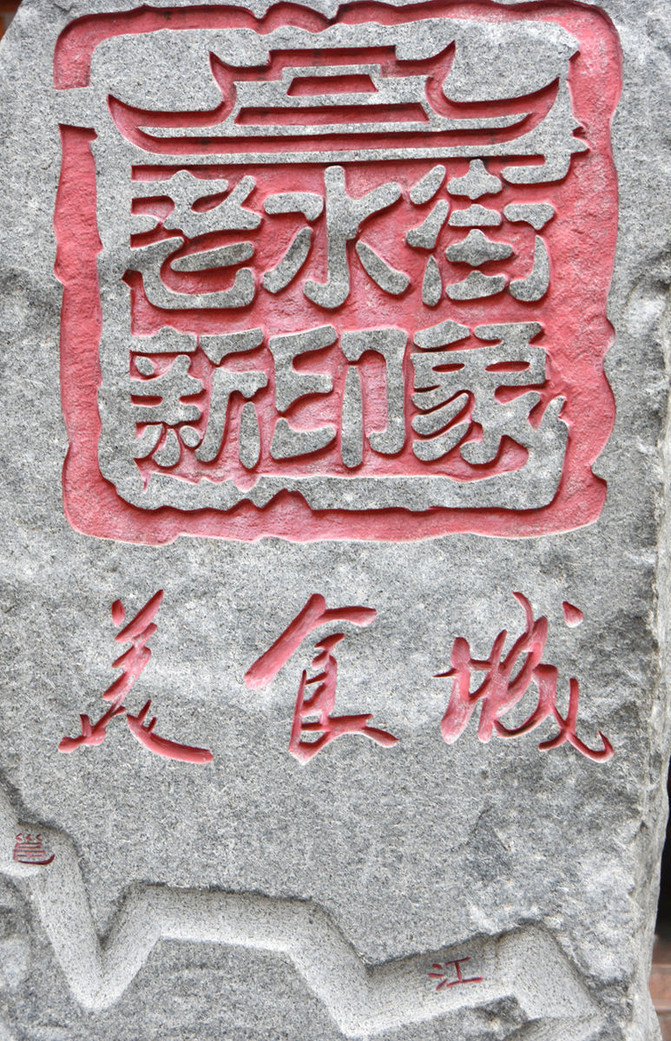 老水街
新印象
美食城
邕
江